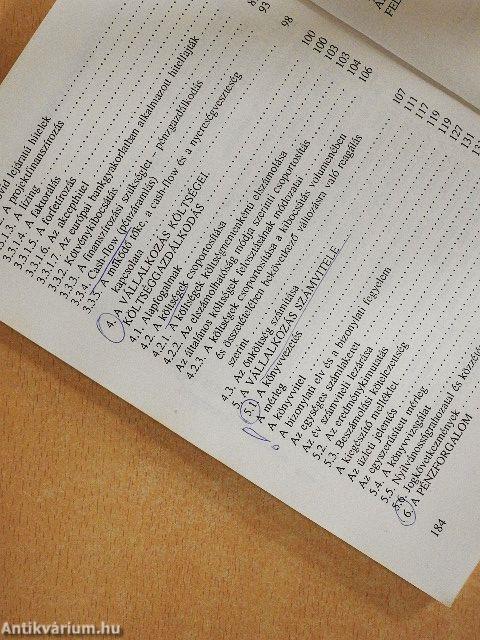 Á
FEL
93
98
100
100
103
103
104
106
107
111
117
119
119
127
131
rövid lejáratú hitelek
A projektfinanszírozás
3.3.1.3. A lízing
3.3.1.4. A faktorálás
3.3.1.5. A forfetírozás
3.3.1.6. Az akceptihitel
3.3.1.7. Az európai bankgyakorlatban alkalmazott hitelfajták
3.3.2. Kötvénykibocsátás
3.3.3. A finanszírozási szükséglet – pénzgazdálkodás
3.3.4. Cash-flow (pénzáramlás)
3.3.5. A működő tőke, a cash-flow és a nyereségveszteség
kapcsolata
4. A VÁLLALKOZÁS KÖLTSÉGEI,
KÖLTSÉGGAZDÁLKODÁS
4.1. Alapfogalmak
4.2. A költségek csoportosítása
4.2.1. A költségek költségnemenkénti elszámolása
4.2.2. Az elszámolhatóság módja szerinti csoportosítás
Az általános költségek felosztásának módozatai
4.2.3. A költségek csoportosítása a kibocsátás volumenében
és összetételében bekövetkező változásra való reagálás
szerint
4.3. Az önköltség számítása
5. A VÁLLALKOZÁS SZÁMVITELE
5.1. A könyvvezetés
A mérleg
A könyvvitel
A bizonylati elv és a bizonylati fegyelem
Az egységes számlakeret
Az év számviteli lezárása
5.2. Az eredménykimutatás
5.3. Beszámolási kötelezettség
A kiegészítő melléklet
Az üzleti jelentés
Az egyszerűsített mérleg
5.4. A könyvvizsgálat
5.5. Nyilvánosságrahozatal és közzététel
5.6. Jogkövetkezmények
6. A PÉNZFORGALOM
184
Antikvárium.hu